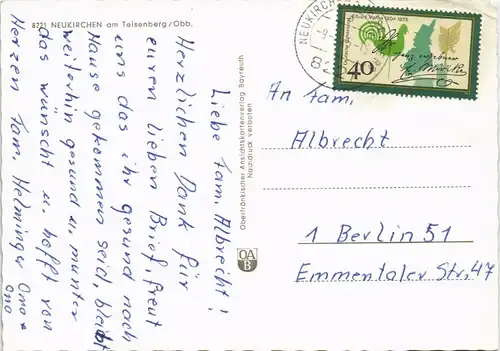 8221 NEUKIRCHEN am Teisenberg/Obb.
Liebe Fam. Albrecht!
Herzlichen Dank für
euren lieben Brief, freut
uns das ihr gesund nach
Hause gekommen seid, bleibt
weiterhin gesund u. munter
das wünscht u. hofft von
Herzen Fam. Helminger Oma +
Oma
Oberfränkischer Ansichtskartenverlag Bayreuth
Nachdruck verboten
OA
B
NEUKIRCHEN
40
An Fam.
Albrecht
1 Berlin 51
Emmentaler Str. 47